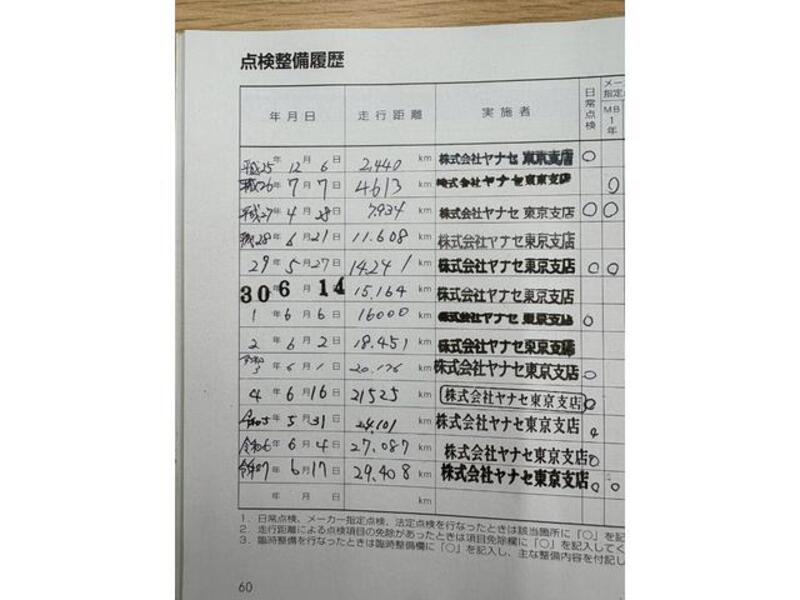 点検整備履歴
年月日 走行距離 実施者 日常点検 メーカー指定点 MB1年
平成25年12月6日 2,440km 株式会社ヤナセ 東京支店 ○
平成26年7月7日 4613km 株式会社ヤナセ 東京支店 ○
平成27年4月28日 7,934km 株式会社ヤナセ 東京支店 ○ ○
平成28年6月21日 11.608km 株式会社ヤナセ 東京支店
29年5月27日 14.241km 株式会社ヤナセ 東京支店 ○ ○
30年6月14日 15.164km 株式会社ヤナセ 東京支店
1年6月6日 16000km 株式会社ヤナセ 東京支店 ○
2年6月2日 18.451km 株式会社ヤナセ 東京支店
令和3年6月1日 20.176km 株式会社ヤナセ東京支店 ○
4年6月16日 21525km 株式会社ヤナセ東京支店 ○
令和5年5月31日 24,101km 株式会社ヤナセ東京支店 ○
令和6年6月4日 27.087km 株式会社ヤナセ東京支店 ○
令和7年6月17日 29.408km 株式会社ヤナセ東京支店 ○ ○
年月日 km
1．日常点検、メーカー指定点検、法定点検を行なったときは該当箇所に「○」を記
2．走行距離による点検項目の免除があったときは項目免除欄に「○」を記入してく
3．臨時整備を行なったときは臨時整備欄に「○」を記入し、主な整備内容を付記し
60